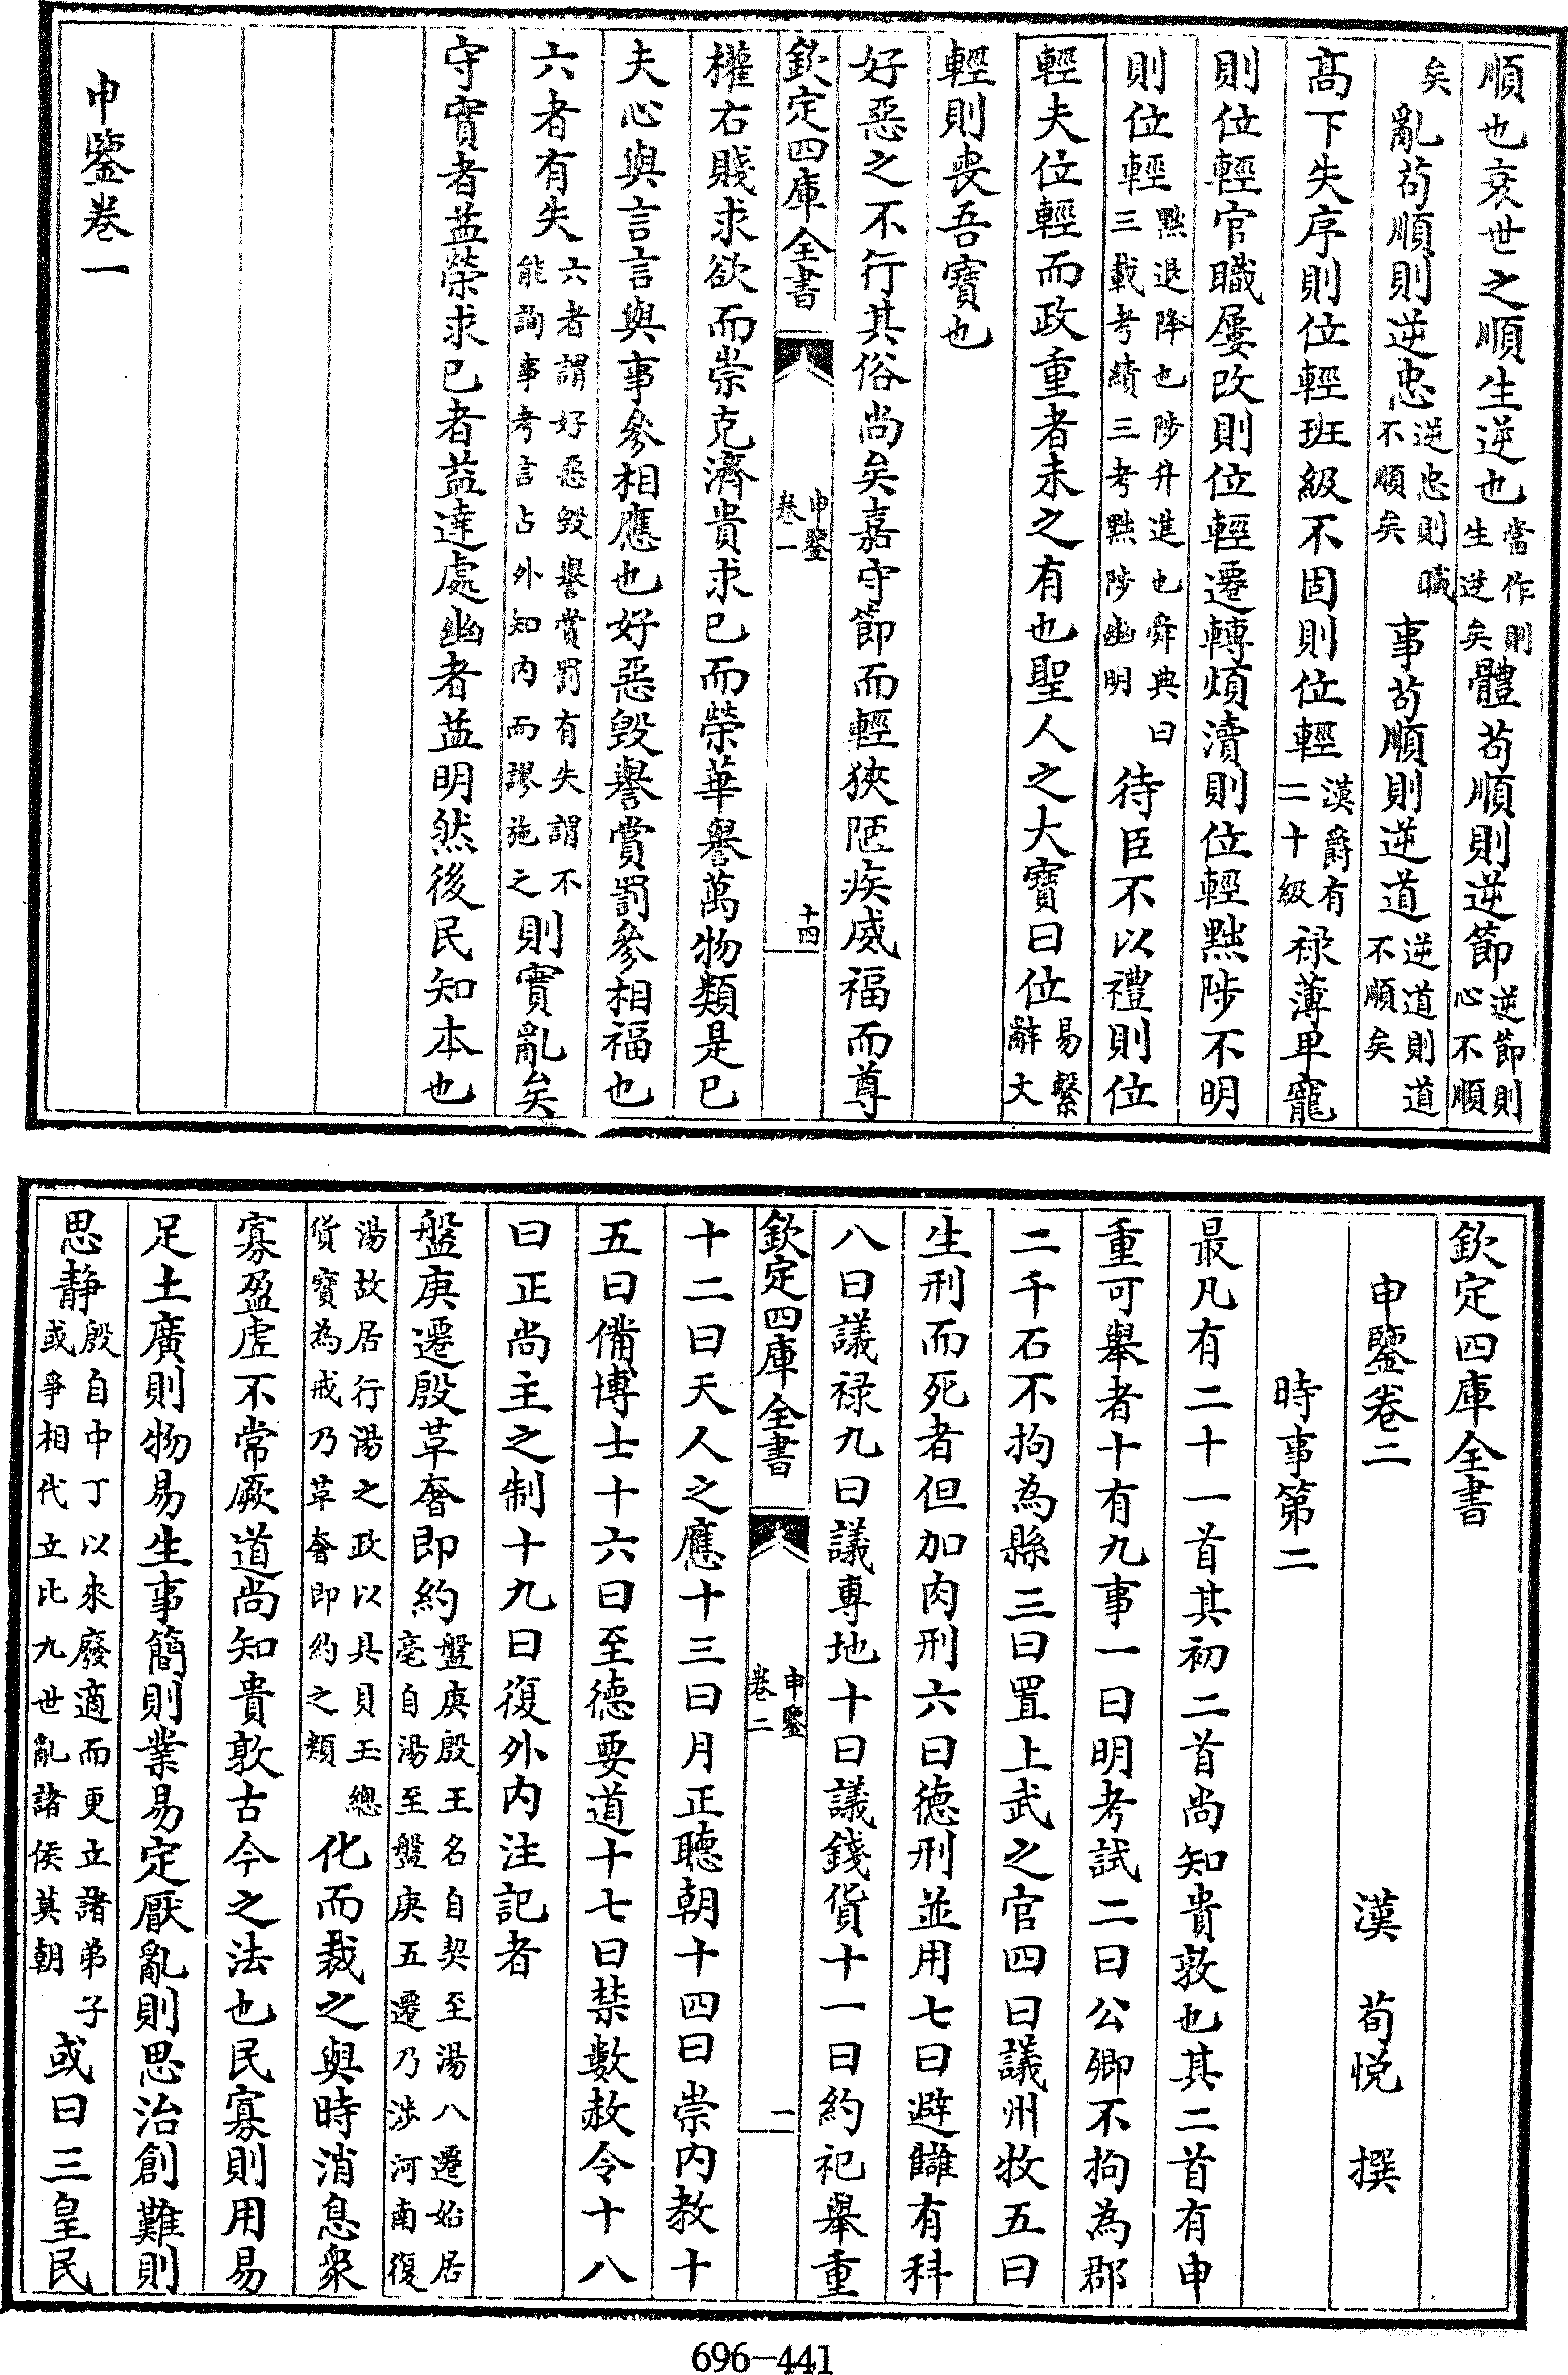 順也衰世之順生逆也當作則生逆矣體苟順則逆節逆節則心不順
矣亂苟順則逆忠逆忠則職不順矣事苟順則逆道逆道則道不順矣
高下失序則位輕班級不固則位輕漢爵有二十級祿薄卑寵
則位輕官職屢改則位輕遷轉煩瀆則位輕黜陟不明
則位輕黜退降也陟升進也舜典曰三載考績三考黜陟幽明待臣不以禮則位
輕夫位輕而政重者未之有也聖人之大寶曰位易繫辭文
輕則喪吾寶也
好惡之不行其俗尚矣嘉守節而輕狹陋疾威福而尊
欽定四庫全書
申鑒卷一
十四
權右賤求欲而崇克濟貴求已而榮華譽萬物類是已
夫心與言言與事參相應也好惡毀譽賞罰參相福也
六者有失六者謂好惡毀譽賞罰有失謂不能詢事考言占外知內而謬施之則實亂矣
守實者益榮求已者益達處幽者益明然後民知本也
申鑒卷一
欽定四庫全書
申鑒卷二
漢 荀悅 撰
時事第二
最凡有二十一首其初二首尚知貴敦也其二首有申
重可舉者十有九事一曰明考試二曰公卿不拘為郡
二千石不拘為縣三曰置上武之官四曰議州牧五曰
生刑而死者但加肉刑六曰德刑並用七曰避讎有科
八曰議祿九曰議專地十曰議錢貨十一曰約祀舉重
欽定四庫全書
申鑒卷二
一
十二曰天人之應十三曰月正聽朝十四曰崇內教十
五曰備博士十六曰至德要道十七曰禁數赦令十八
曰正尚主之制十九曰復外內注記者
盤庚遷殷革奢即約盤庚殷王名自契至湯八遷始居亳自湯至盤庚五遷乃涉河南復
湯故居行湯之政以具貝玉總貨寶為戒乃革奢即約之類化而裁之與時消息衆
寡盈虛不常厥道尚知貴敦古今之法也民寡則用易
足土廣則物易生事簡則業易定厭亂則思治創難則
思靜殷自中丁以來廢適而更立諸弟子或爭相代立比九世亂諸侯莫朝或曰三皇民
696-441